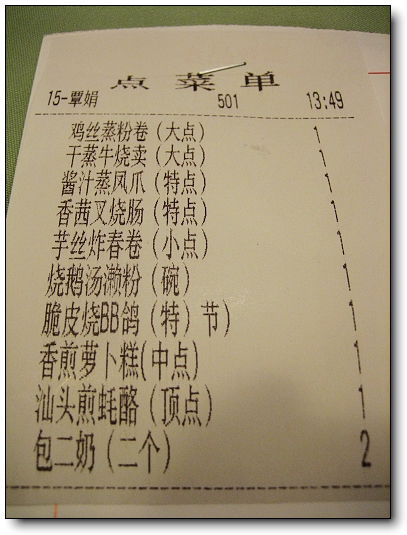 点菜单
15-覃娟 501 13:49
鸡丝蒸粉卷(大点) 1
干蒸牛烧卖(大点) 1
酱汁蒸凤爪(特点) 1
香茜叉烧肠(特点) 1
芋丝炸春卷(小点) 1
烧鹅汤濑粉(碗) 1
脆皮烧BB鸽(特)节) 1
香煎萝卜糕(中点) 1
汕头煎蚝酪(顶点) 1
包二奶(二个) 2